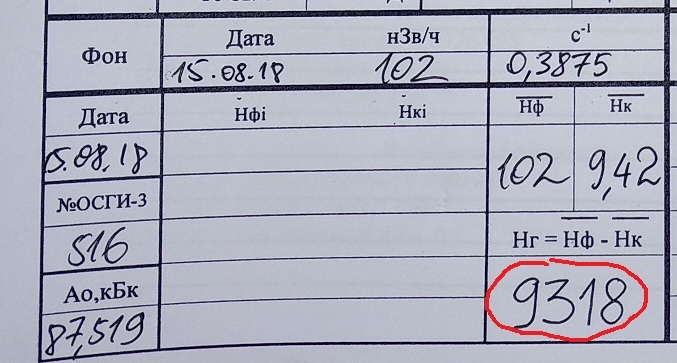 Фон Дата нЗв/ч с⁻¹
15.08.18 102 0,3875
Дата Ḣфі Ḣкі Ḣф Ḣк
15.08.18 102 9,42
№ОСГИ-3
516 Нг = Нф - Нк
Ао,кБк 9318
87,519